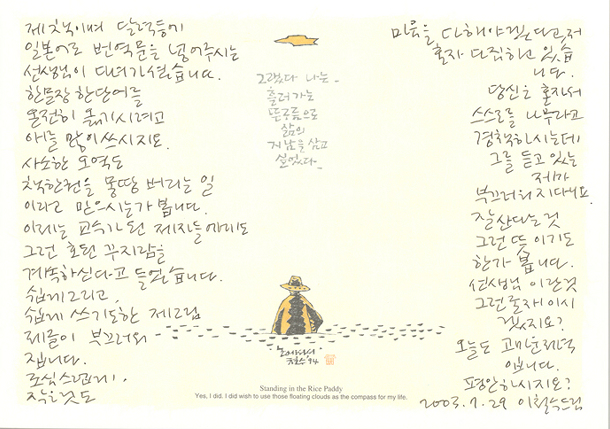 제 책이며 달력등에
일본어로 번역문을 넣어주시는
선생님이 다녀가셨습니다.
한문장 한단어를
온전히 옮기시려고
애를 많이 쓰시지요.
사소한 오역도
책한권을 몽땅 버리는 일
이라고 믿으시는가 봅니다.
이제는 교수가된 제자들에게도
그런 호된 꾸지람을
계속하신다고 들었습니다.
쉽게 그리고,
쉽게 쓰기도한 제그림
제글이 부끄러워
집니다.
조심스럽게,
작은것도
그랬다 나는_
흘러가는
뜬구름으로
삶의
게 남을 삼고
싶었다_
논에서다
철수 '94
Standing in the Rice Paddy
Yes, I did. I did wish to use those floating clouds as the compass for my life.
마음을 다해야겠다고, 저
혼자 다짐하고 있습
니다.
당신을 혼자서
스스로를 나무라고
경책하시는데
그를 듣고 있는
제가
부끄러워지다니요.
잘산다는 것
그런 뜻이기도
한가 봅니다.
선생님 이란것
그런 존재이시
겠지요?
오늘도 고마운기억
입니다.
평안하시지요?
2003. 7. 29 이철수드림